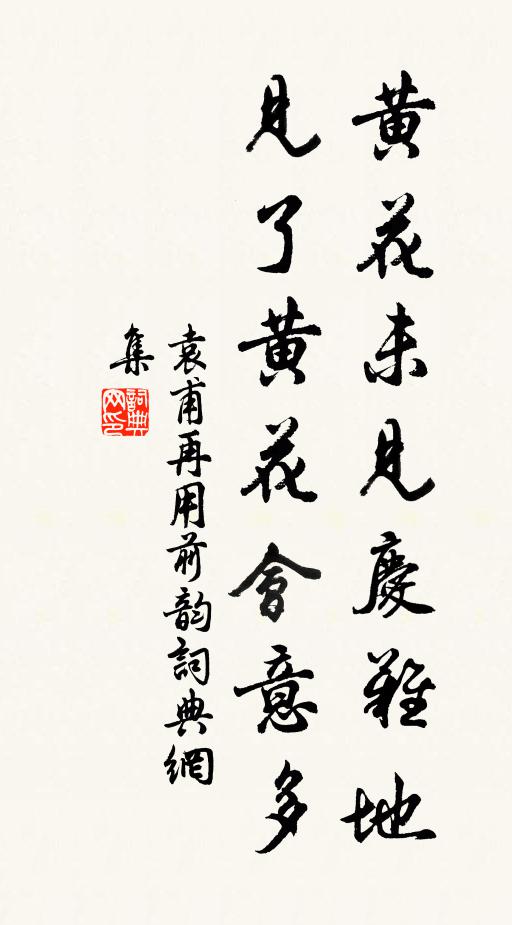 黃花未見慶難地
見了黃花會意多
袁甫再用前韵詞典網
集
詞典网印